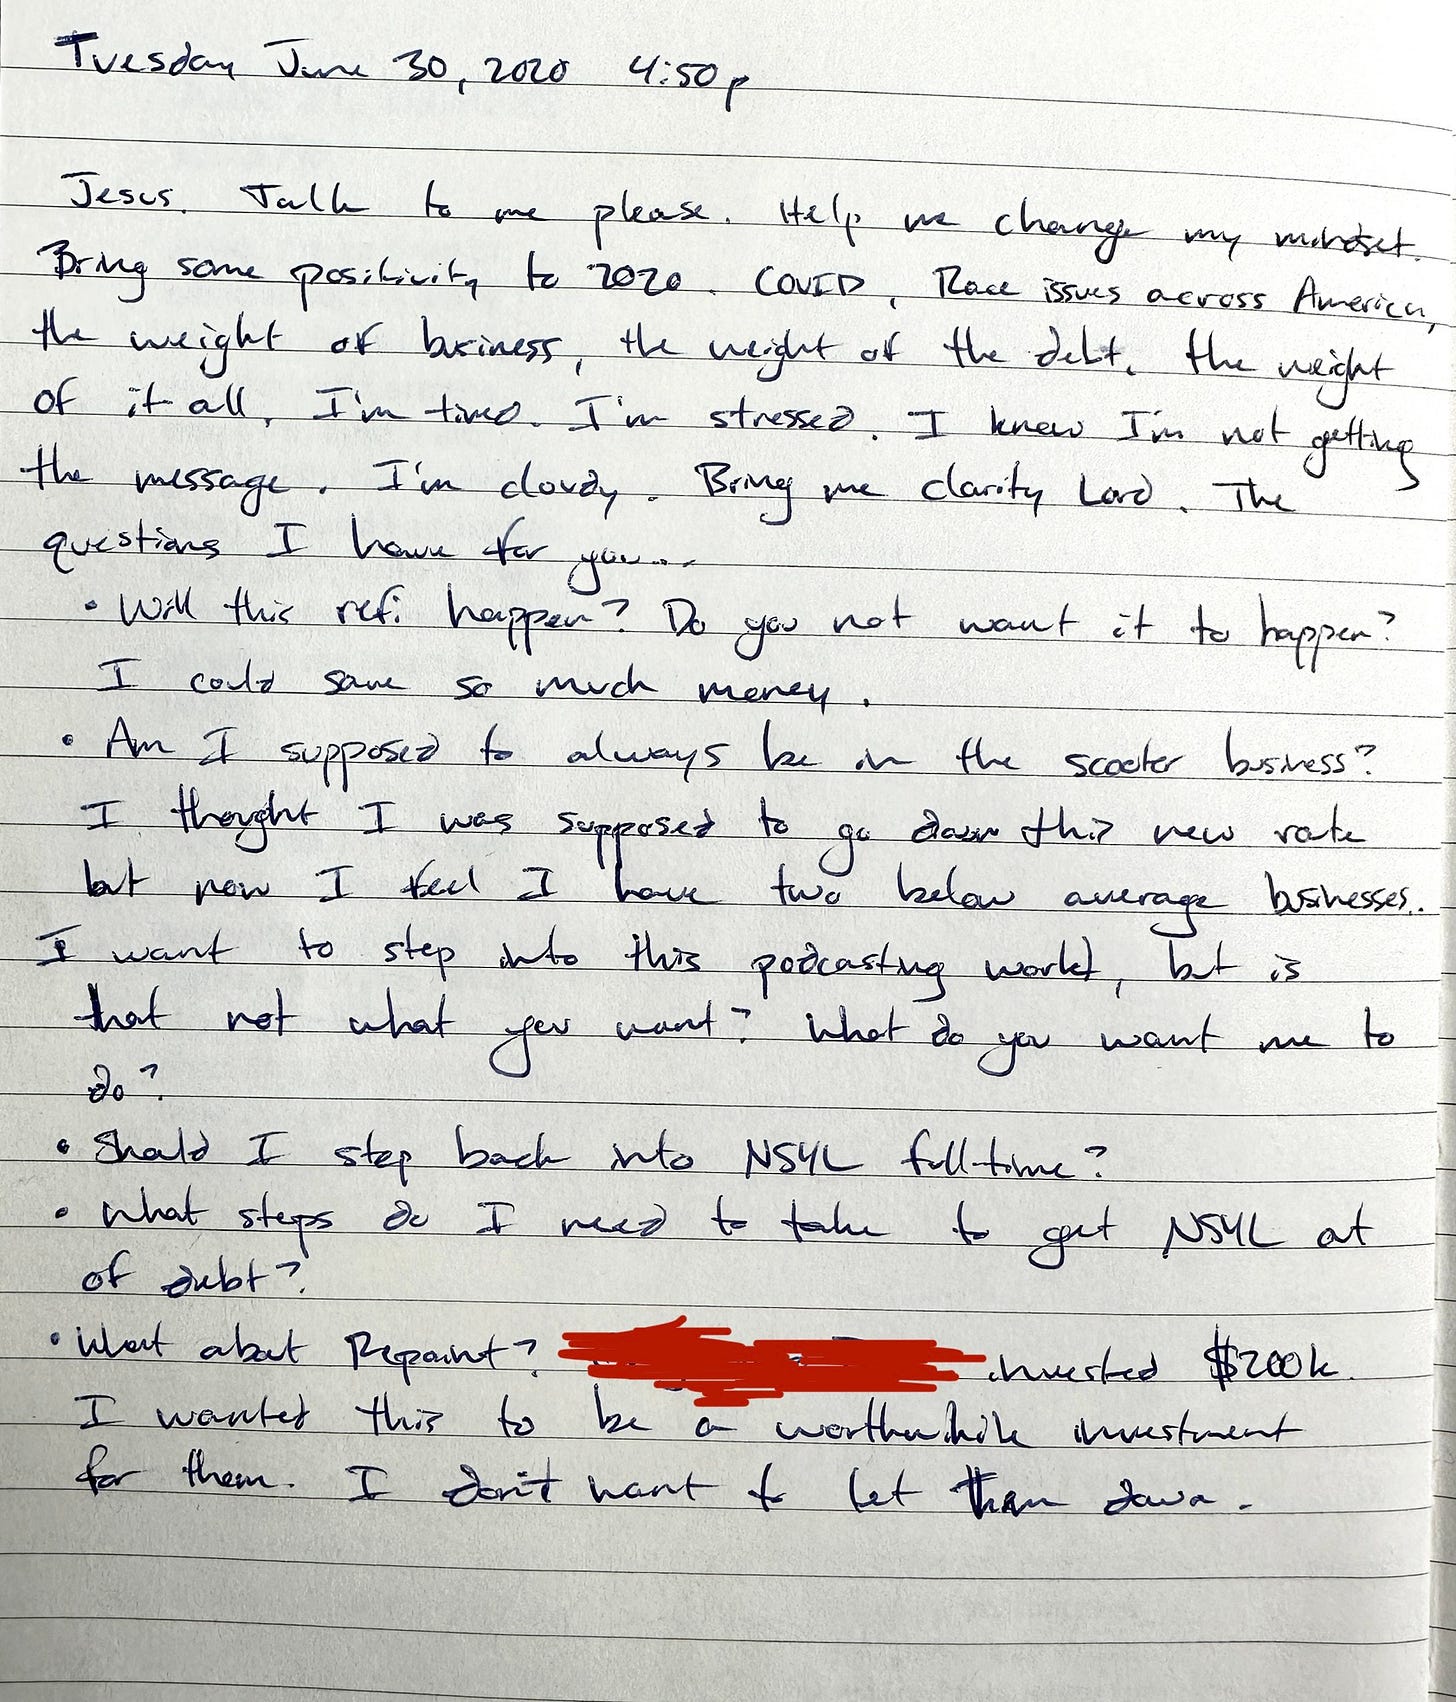 Tuesday June 30, 2020 4:50p
Jesus. Talk to me please. Help me change my mindset.
Bring some positivity to 2020. COVID, Race issues across America,
the weight of business, the weight of the debt, the weight
of it all, I'm tired. I'm stressed. I know I'm not getting
the message. I'm cloudy. Bring me clarity Lord. The
questions I have for you...
• Will this refi happen? Do you not want it to happen?
I could save so much money.
• Am I supposed to always be in the scooter business?
I thought I was supposed to go down this new route
but now I feel I have two below average businesses.
I want to step into this podcasting world, but is
that not what you want? What do you want me to
do?
• Should I step back into NSYL full-time?
• What steps do I need to take to get NSYL at
of debt?
• What about Repaint? invested $200k.
I wanted this to be a worthwhile investment
for them. I don't want to let them down.